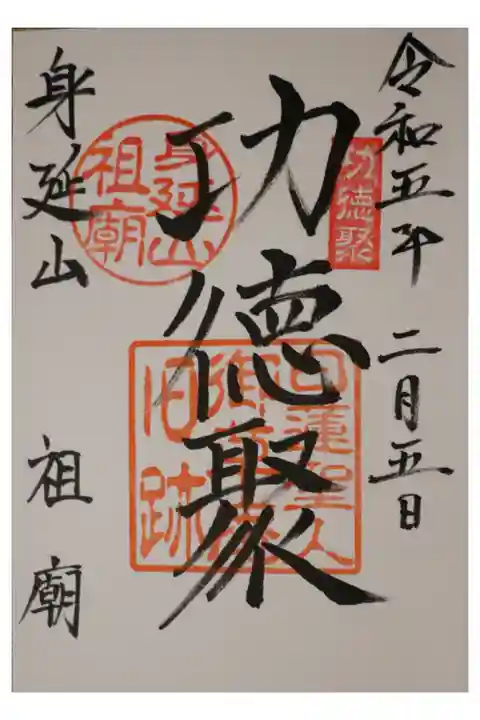 令和五年 二月五日
功徳聚
功徳聚
身延山 祖廟
身延山
祖廟
日蓮聖人
御草庵
旧跡